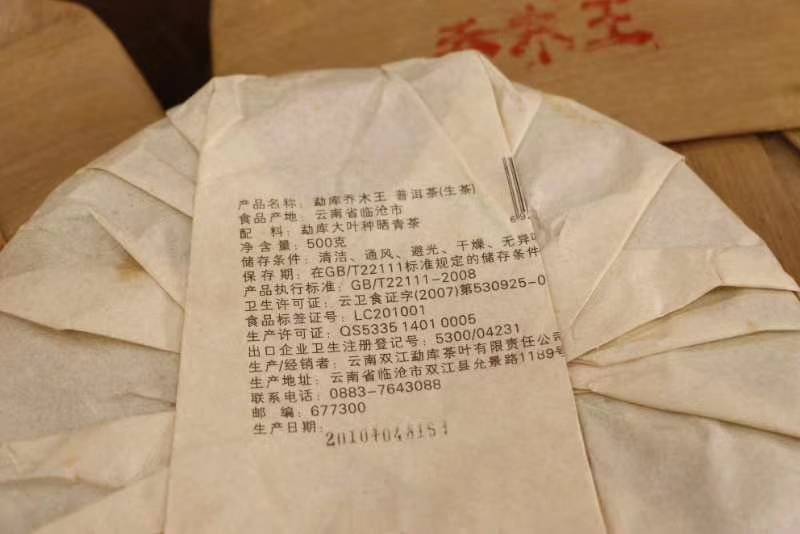 乔木王
产品名称：勐库乔木王 普洱茶(生茶)
食品产地：云南省临沧市
配 料：勐库大叶种晒青茶
净含量：500克
储存条件：清洁、通风、避光、干燥、无异
保存期：在GB/T22111标准规定的储存条件
产品执行标准：GB/T22111-2008
卫生许可证：云卫食证字(2007)第530925-0
食品标签证号：LC201001
生产许可证：QS5335 1401 0005
出口企业卫生注册登记号：5300/04231
生产/经销者：云南双江勐库茶叶有限责任公司
生产地址：云南省临沧市双江县允景路1189号
联系电话：0883-7643088
邮 编：677300
生产日期：
69